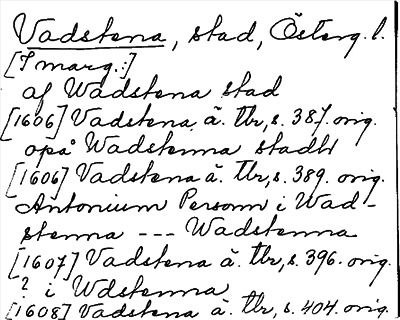 Vadstena, stad, Österg. l.
[I marg.:]
af Wadstena stad
[1606] Vadstena ä. tbr, s. 387. orig.
opå Wadstenna stadh
[1606] Vadstena ä. tbr, s. 389. orig.
Antonium Persom i Wad-
stenna --- Wadstenna
[1607] Vadstena ä. tbr, s. 396. orig.
? i Wdstenna
[1608] Vadstena ä. tbr, s. 404. orig.